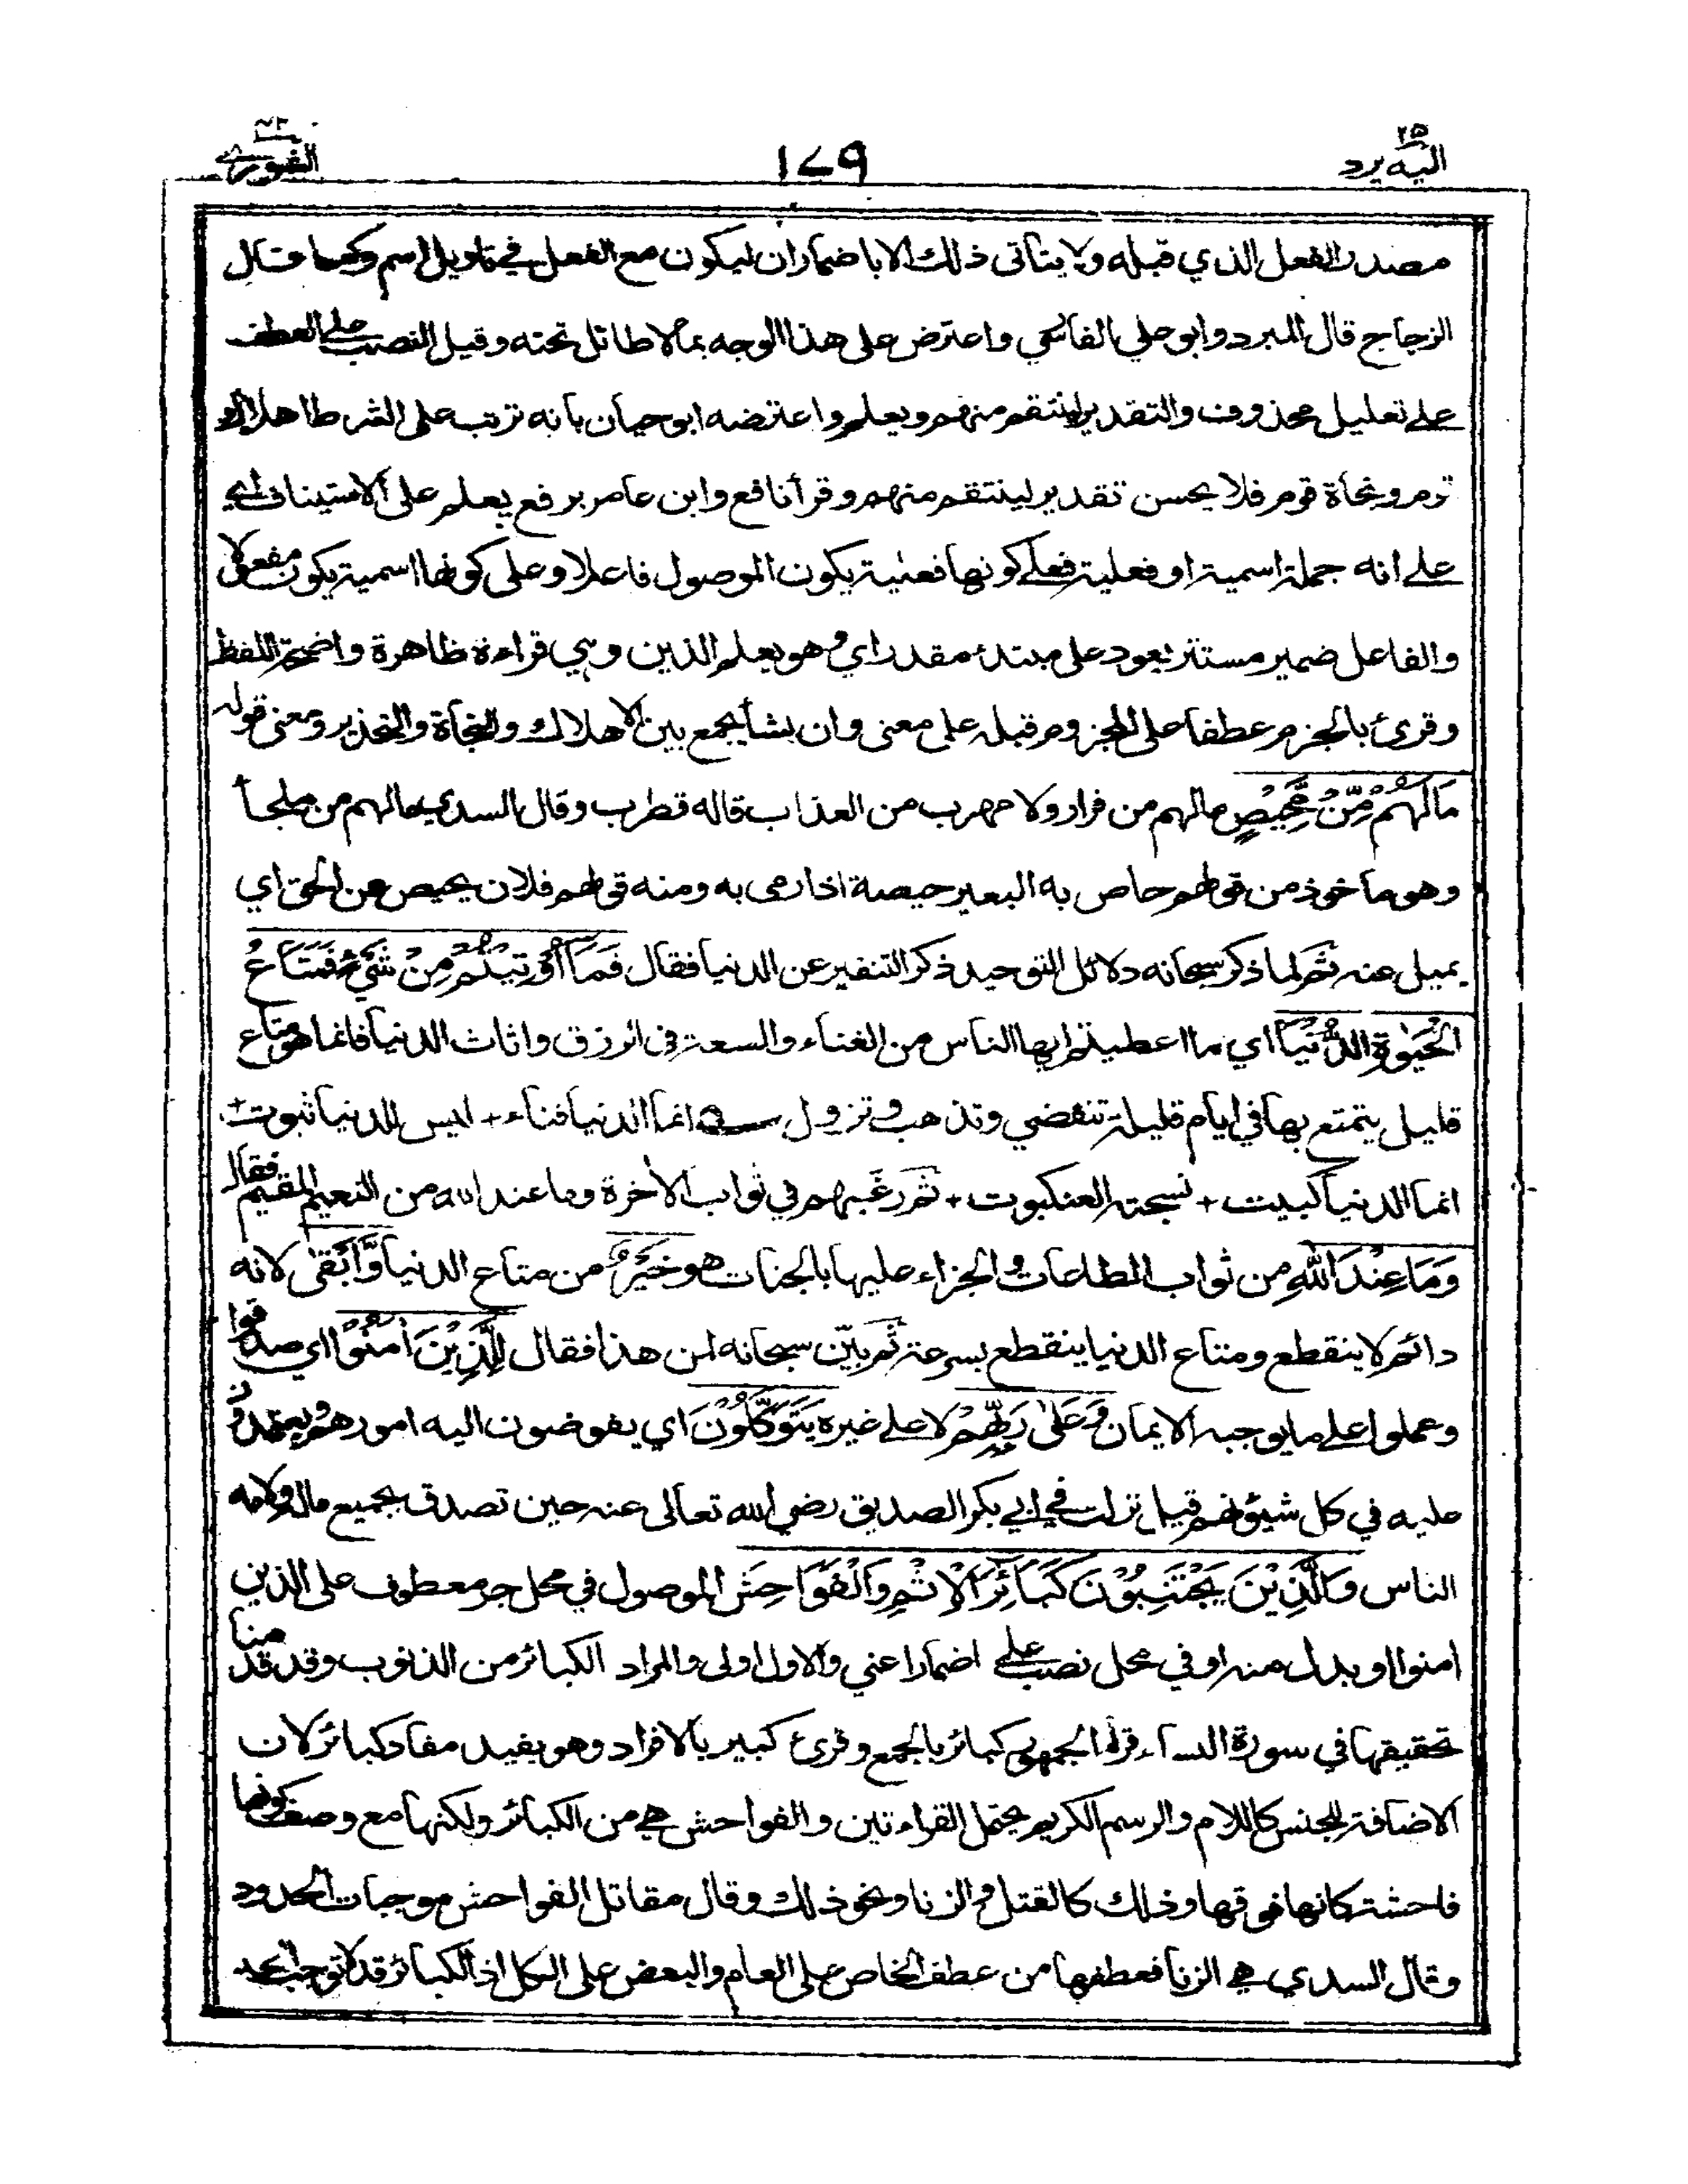 ٢٥
اليه يرد
١٧٩
الشورى ٤٢
مصدر الفعل الذي قبله ولا يتأتى ذلك الا باضمار ان ليكون مع الفعل في تاويل اسم وكما قال
الزجاج قال المبرد وابو علي الفارسي واعترض على هذا الوجه بما لا طائل تحته وقيل النصب على العطف
على تعليل محذوف والتقدير لينتقم منهم ويعلم واعترضه ابو حيان بانه ترتب على الشرط اهلاك
قوم ونجاة قوم فلا يحسن تقدير لينتقم منهم وقرأ نافع وابن عامر برفع يعلم على الاستيناف اي
على انه جملة اسمية او فعلية فعلى كونها فعلية يكون الموصول فاعلا وعلى كونها اسمية يكون مفعولا
والفاعل ضمير مستتر يعود على مبتدء مقدر اي وهو يعلم الذين وهي قراءة ظاهرة واضحة اللفظ
وقرئ بالجزم عطفا على المجزوم قبله على معنى وان يشأ يجمع بين الاهلاك والنجاة والتحذير ومعنى قوله
مَا لَهُمْ مِّنْ مَّحِيْصٍ ما لهم من فرار ولا مهرب من العذاب قاله قطرب وقال السدي ما لهم من ملجأ
وهو ماخوذ من قولهم حاص به البعير حيصة اذا رمى به ومنه قولهم فلان يحيص عن الحق اي
يميل عنه ثم لما ذكر سبحانه دلائل التوحيد ذكر التنفير عن الدنيا فقال فَمَا أُوْتِيْتُمْ مِنْ شَيْءٍ فَمَتَاعُ
الْحَيٰوةِ الدُّنْيَا اي ما اعطيتم ايها الناس من الغناء والسعة في الرزق واثاث الدنيا فانما هو متاع
قليل يتمتع بها في ايام قليلة تنقضي وتذهب وتزول انما الدنيا فناء + ليس للدنيا ثبوت +
انما الدنيا كبيت + نسجته العنكبوت + ثم رغبهم في ثواب الاخرة وما عند الله من النعيم المقيم فقال
وَمَا عِنْدَ اللهِ من ثواب الطاعات والجزاء عليها بالجنات هو خَيْرٌ من متاع الدنيا وَّأَبْقٰى لانه
دائم لا ينقطع ومتاع الدنيا ينقطع بسرعة ثم بيّن سبحانه لمن هذا فقال لِلَّذِيْنَ اٰمَنُوْا اي صدقوا
وعملوا على ما يوجبه الايمان وَعَلٰى رَبِّهِمْ لا على غيره يَتَوَكَّلُوْنَ اي يفوضون اليه امورهم ويعتمدون
عليه في كل شيؤنهم قيل نزلت في ابي بكر الصديق رضي الله تعالى عنه حين تصدق بجميع ماله ولامه
الناس وَالَّذِيْنَ يَجْتَنِبُوْنَ كَبَائِرَ الْاِثْمِ وَالْفَوَاحِشَ الموصول في محل جر معطوف على الذين
امنوا او بدل منه او في محل نصب على اضمار اعني والاول اولى والمراد الكبائر من الذنوب وقد قدمنا
تحقيقها في سورة النساء قرأ الجمهور كبائر بالجمع وقرئ كبير بالافراد وهو يفيد مفاد كبائر لان
الاضافة للجنس كاللام والرسم الكريم يحتمل القراءتين والفواحش هي من الكبائر ولكنها مع وصف كونها
فاحشة كانها فوقها وذلك كالقتل والزنا ونحو ذلك وقال مقاتل الفواحش موجبات الحدود
وقال السدي هي الزنا فعطفها من عطف الخاص على العام والبعض على الكل اذ الكبائر قد لا توجب